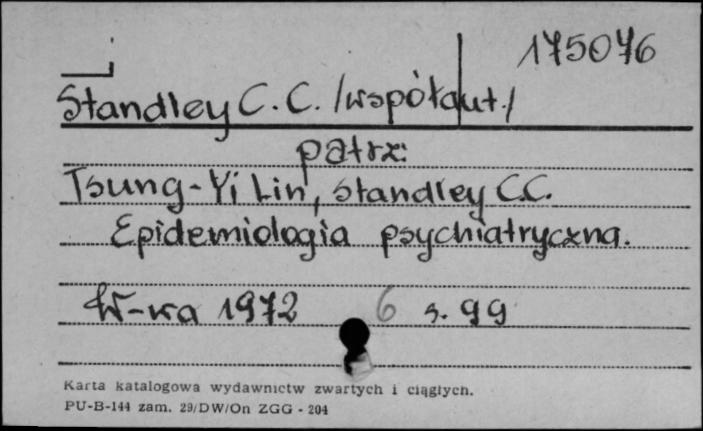 175076
Standley C. C. /współaut./
patrz:
Tsung-Yi Lin, Standley C.C.
Epidemiologia psychiatryczna.
W-wa 1972 6 s. 99
Karta katalogowa wydawnictw zwartych i ciągłych.
PU-B-144 zam. 29/DW/On ZGG - 204